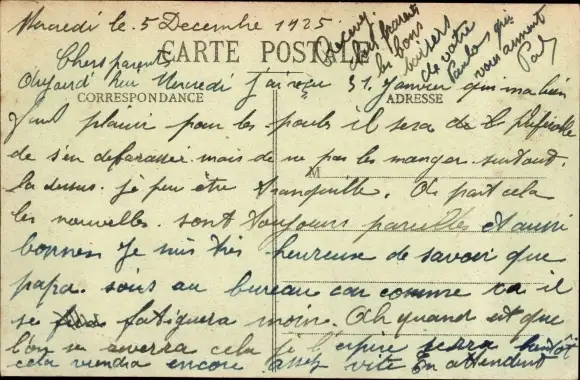 Mercredi le 5 Decembre 1925
Chers parents
CARTE POSTALE
Recevez
chers parents
les bons
baisers
de votre
qui
vous aiment
Aujourd' hui Mercredi J'ai reçu 31 Janvier qui m'a bien
CORRESPONDANCE
ADRESSE
fait plaisir pour les poules il sera de préférable
de s'en defarasser mais de ne pas les manger surtout.
M
la dessus je peu être tranquille. A part cela
les nouvelles sont toujours pareilles et aussi
bonnes Je suis très heureuse de savoir que
papa sois au bureau car comme ca il
se fatiguera moins. Ah quand est que
l'on se averra cela je l'espere serra bientôt
cela viendra encore assez vite En attendent